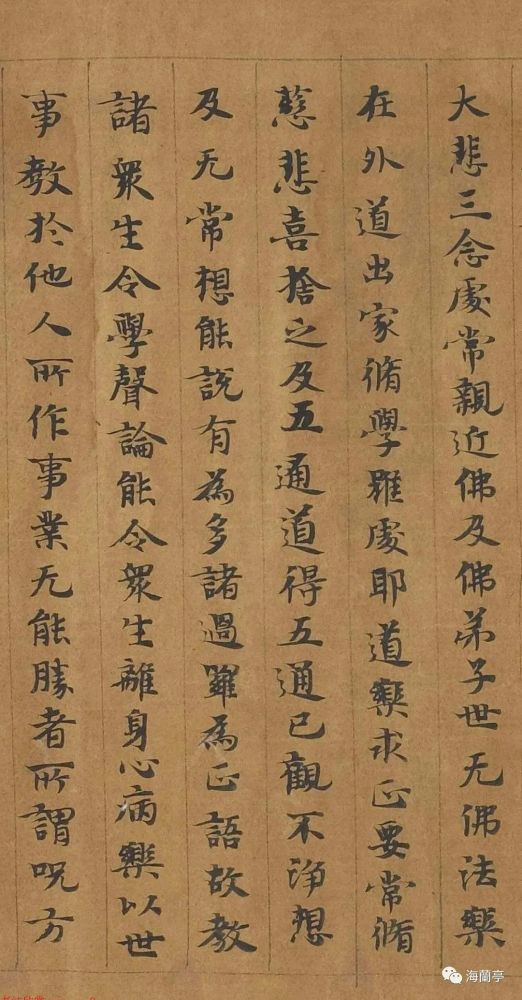 大悲三念處常親近佛及佛弟子世无佛法樂
在外道出家脩學雖處耶道樂求正要常脩
慈悲喜捨之及五通道得五通已觀不淨想
及无常想能說有為多諸過雖為正語故教
諸衆生令學聲論能令衆生離身心病樂以世
事教於他人所作事業无能勝者所謂呪方
海蘭亭